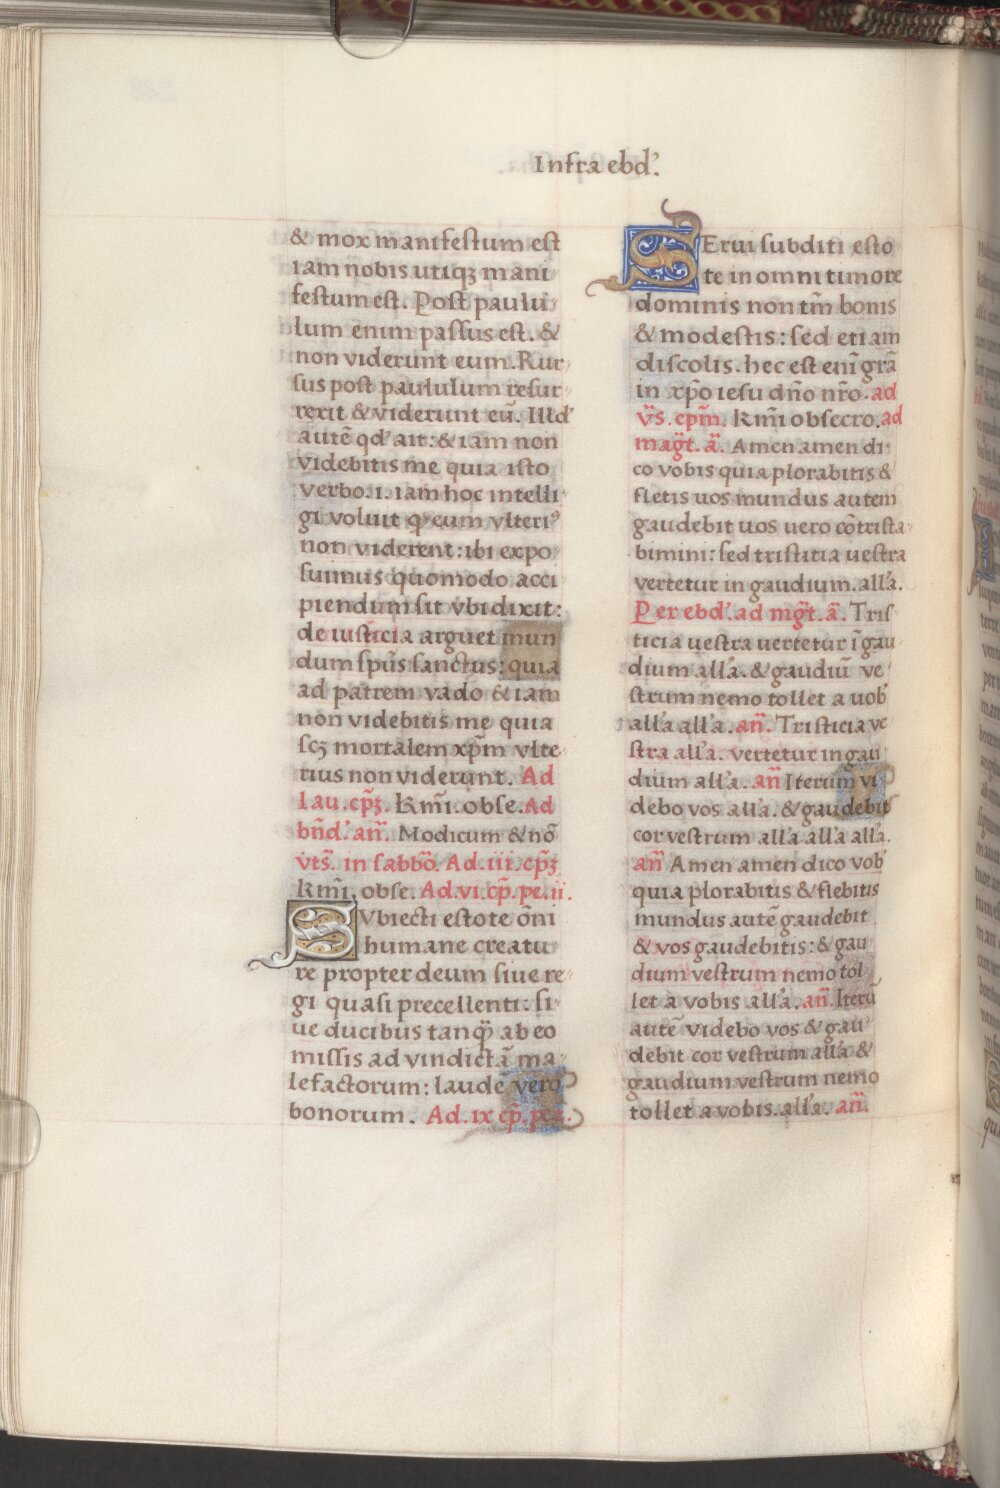 Infra ebd'.
& mox manifestum est
iam nobis utiqȝ mani
festum est. Post paulu
lum enim passus est. &
non viderunt eum. Rur
sus post paululum resur
rexit & viderunt eū. Illd'
autē qd' ait: & iam non
videbitis me quia isto
verbo .i. iam hoc intelli
gi voluit qꝫ eum vlteriꝰ
non viderent: ibi expo
suimus quomodo acci
piendum sit vbi dixit:
de iusticia arguet mun
dum sp̄us sanctus: quia
ad patrem vado & iam
non videbitis me quia
scȝ mortalem xp̄m vlte
rius non viderunt. Ad
lau. cp̄ȝ. Kr̄mi. obse. Ad
bn̄d'. an̄. Modicum & nō
vts̄. in sabbō. Ad. iii. cp̄ȝ
Kr̄mi. obse. Ad. vi. cp̄. pe. ii.
SVbiecti estote ōni
humane creatu
re propter deum siue re
gi quasi precellenti: si
ue ducibus tanqꝫ ab eo
missis ad vindictā ma
lefactorum: laude vero
bonorum. Ad. ix cp̄. pe. 2.
SErui subditi esto
te in omni timore
dominis non tm̄ bonis
& modestis: sed etiam
discolis. hec est enī grā
in xp̄o iesu dn̄o nr̄o. ad
v̄s. cpm̄. Kr̄mi obsecro. ad
mag̅t. ā. Amen amen di
co vobis quia plorabitis &
fletis uos mundus autem
gaudebit uos uero cōtrista
bimini: sed tristitia uestra
vertetur in gaudium. all'a.
Per ebd'. ad mg̅t. ā. Tris
ticia uestra uertetur ī gau
dium all'a. & gaudiū ve
strum nemo tollet a uob'
all'a all'a. an̄. Tristicia ve
stra all'a. vertetur in gau
dium all'a. an̄ Iterum vi
debo vos all'a. & gaudebit
cor vestrum all'a all'a all'a.
an̄ Amen amen dico vob'
quia plorabitis & flebitis
mundus autē gaudebit
& vos gaudebitis: & gau
dium vestrum nemo tol
let a vobis all'a. an̄. Iterū
autē videbo vos & gau
debit cor vestrum all'a &
gaudium vestrum nemo
tollet a vobis. all'a. an̄.